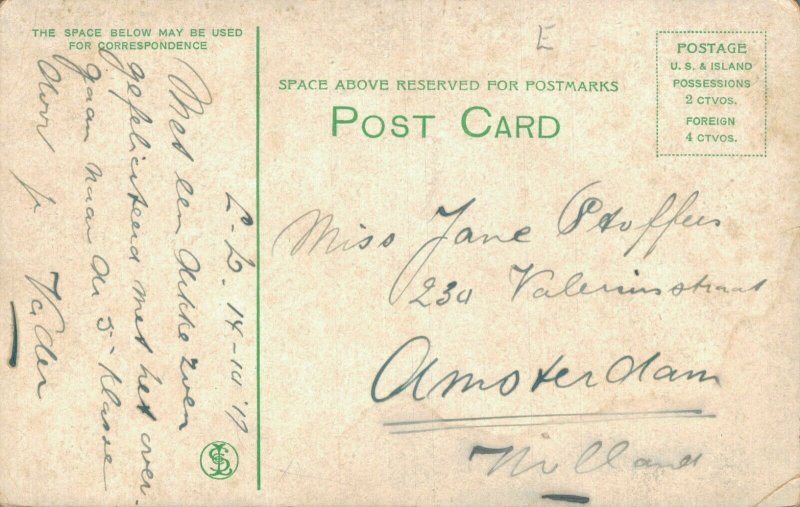 THE SPACE BELOW MAY BE USED
FOR CORRESPONDENCE
E
SPACE ABOVE RESERVED FOR POSTMARKS
POST CARD
POSTAGE
U. S. & ISLAND
POSSESSIONS
2 CTVOS.
FOREIGN
4 CTVOS.
14-10 '17
Met een dikke zoen
gefeliciteerd met het over-
gaan naar de 5e klasse
door je
Vader
Miss Jane Stoffers
230 Valeriusstraat
Amsterdam
Holland